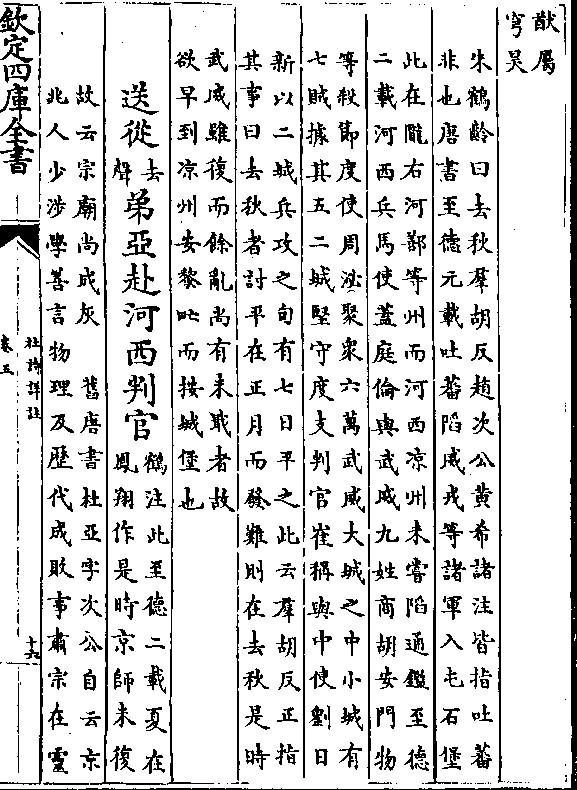 猷屬
穹昊
朱鶴齡曰去秋羣胡反趙次公黃希諸注皆指吐蕃
非也唐書至德元載吐蕃陷威戎等諸軍入屯石堡
此在隴右河鄯等州而河西凉州未嘗陷通鑑至德
二載河西兵馬使蓋庭倫與武威九姓商胡安門物
等殺節度使周泌聚衆六萬武威大城之中小城有
七賊據其五二城堅守度支判官崔稱與中使劉日
新以二城兵攻之旬有七日平之此云羣胡反正指
其事曰去秋者討平在正月而發難則在去秋是時
武威雖復而餘亂尚有未戢者故
欲早到凉州安黎甿而按城堡也
送從去聲弟亞赴河西判官鶴注此至德二載夏在
鳳翔作是時京師未復
故云宗廟尚成灰 舊唐書杜亞字次公自云京
兆人少涉學善言物理及歷代成敗事肅宗在靈
欽定四庫全書
杜詩詳註
卷五
十六